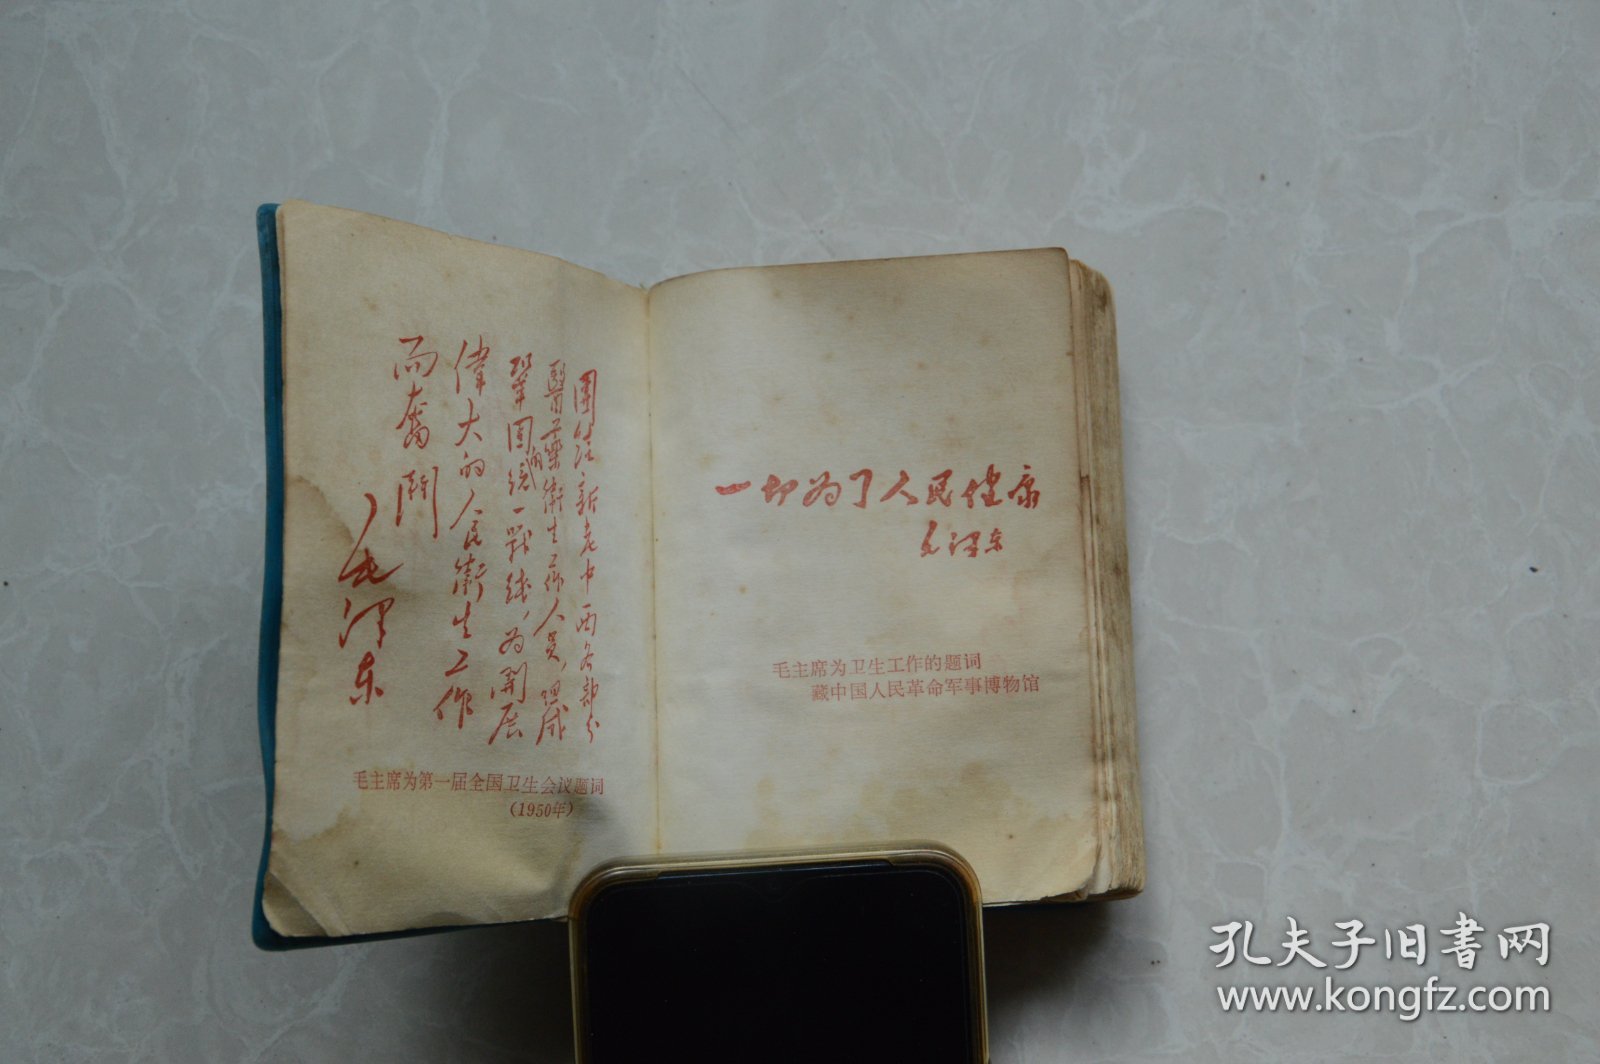 團结新老中西各部分
醫药衞生工作人员，组成
鞏固的统一戰线，为開展
偉大的人民衞生工作
而奮鬥
毛泽东
毛主席为第一届全国卫生会议题词
(1950年)
一切为了人民健康
毛泽东
毛主席为卫生工作的题词
藏中国人民革命军事博物馆
孔夫子旧书网
www.kongfz.com